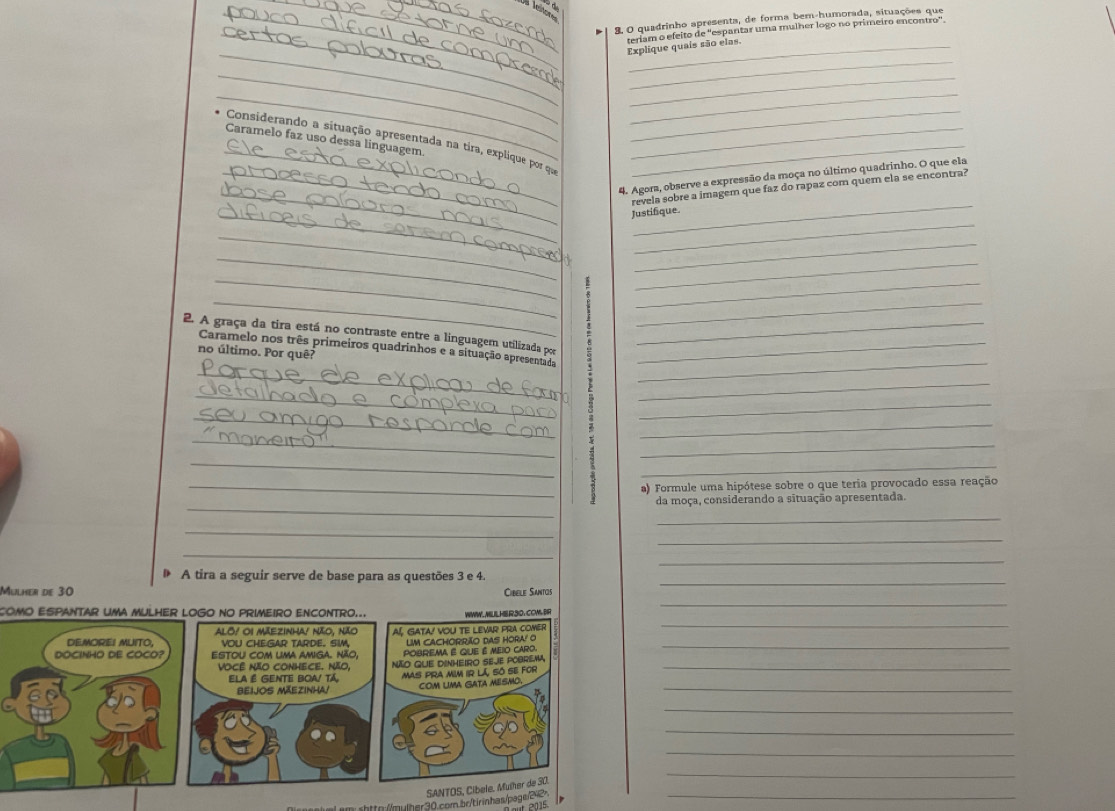 pouco difícil de compreende
certas palavras
• Considerando a situação apresentada na tira, explique por que
Caramelo faz uso dessa linguagem.
ele está explicando o
processo tendo como
base palavras mais
dificeis de serem
2. A graça da tira está no contraste entre a linguagem utilizada por
Caramelo nos três primeiros quadrinhos e a situação apresentada
no último. Por quê?
Porque ele explica de
detalhado e complexa para
seu amigo responde com
"maneiro".
A tira a seguir serve de base para as questões 3 e 4.
MULHER DE 30
CIBELE SANTOS
COMO ESPANTAR UMA MULHER LOGO NO PRIMEIRO ENCONTRO...
WWW.MULHER30.COM.BR
DEMOREI MUITO,
DOCINHO DE COCO?
ALÔ! OI MÃEZINHA! NÃO, NÃO
VOU CHEGAR TARDE. SIM,
ESTOU COM UMA AMIGA. NÃO,
VOCÊ NÃO CONHECE. NÃO,
ELA É GENTE BOA! TÁ,
BEIJOS MÃEZINHA!
AÍ, GATA! VOU TE LEVAR PRA COMER
UM CACHORRÃO DAS HORA! O
POBREMA É QUE É MEIO CARO.
NÃO QUE DINHEIRO SEJE POBREMA,
MAS PRA MIM IR LÁ, SÓ SE FOR
COM UMA GATA MESMO.
SANTOS, Cibele. Mulher de 30.
<http://mulher30.com.br/tirinhas/page/242>.
out. 2015.
Reprodução proibida. Art. 184 do Código Penal e Lei 9.610 de 19 de fevereiro de 1998.
3. O quadrinho apresenta, de forma bem-humorada, situações que
teriam o efeito de "espantar uma mulher logo no primeiro encontro".
Explique quais são elas.
4. Agora, observe a expressão da moça no último quadrinho. O que ela
revela sobre a imagem que faz do rapaz com quem ela se encontra?
Justifique.
a) Formule uma hipótese sobre o que teria provocado essa reação
da moça, considerando a situação apresentada.